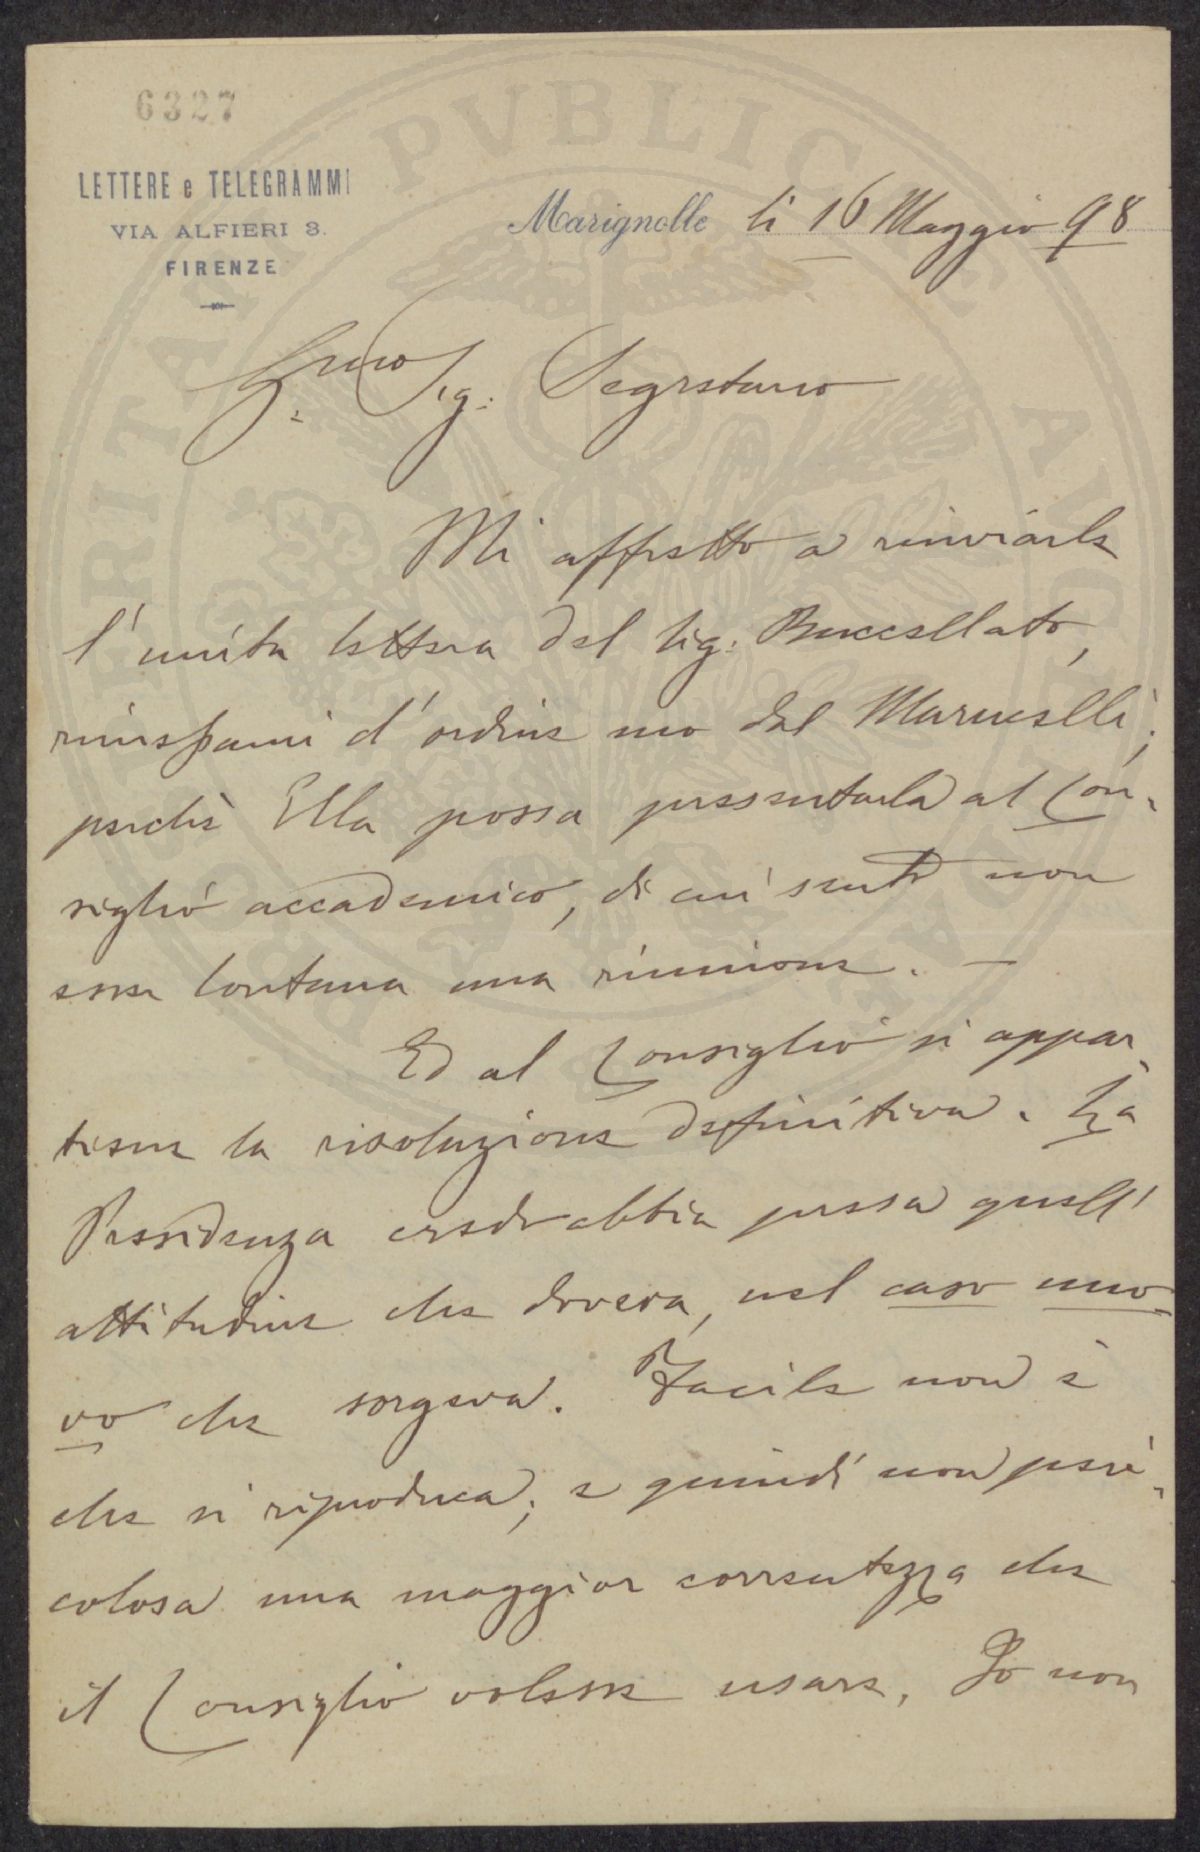 6327
LETTERE e TELEGRAMMI
VIA ALFIERI 3.
FIRENZE
Marignolle li 16 Maggio 98
Sig: Segretario
Mi affretto a rinviarle
l'unita lettera del sig: Buccellato,
d'ordine mio dal Marucelli;
perchè Ella possa presentarla al Con-
siglio accademico, di cui sento non
esser lontana una riunione. —
Ed al Consiglio si appar-
tiene la risoluzione definitiva. La
Presidenza credo abbia presa quell'
attitudine che doveva, nel caso nuo-
vo che sorgeva. Facile non è
che si riproduca; e quindi non peri-
colosa una maggior correntezza che
il Consiglio volesse usare. Io non
PVBLICAE